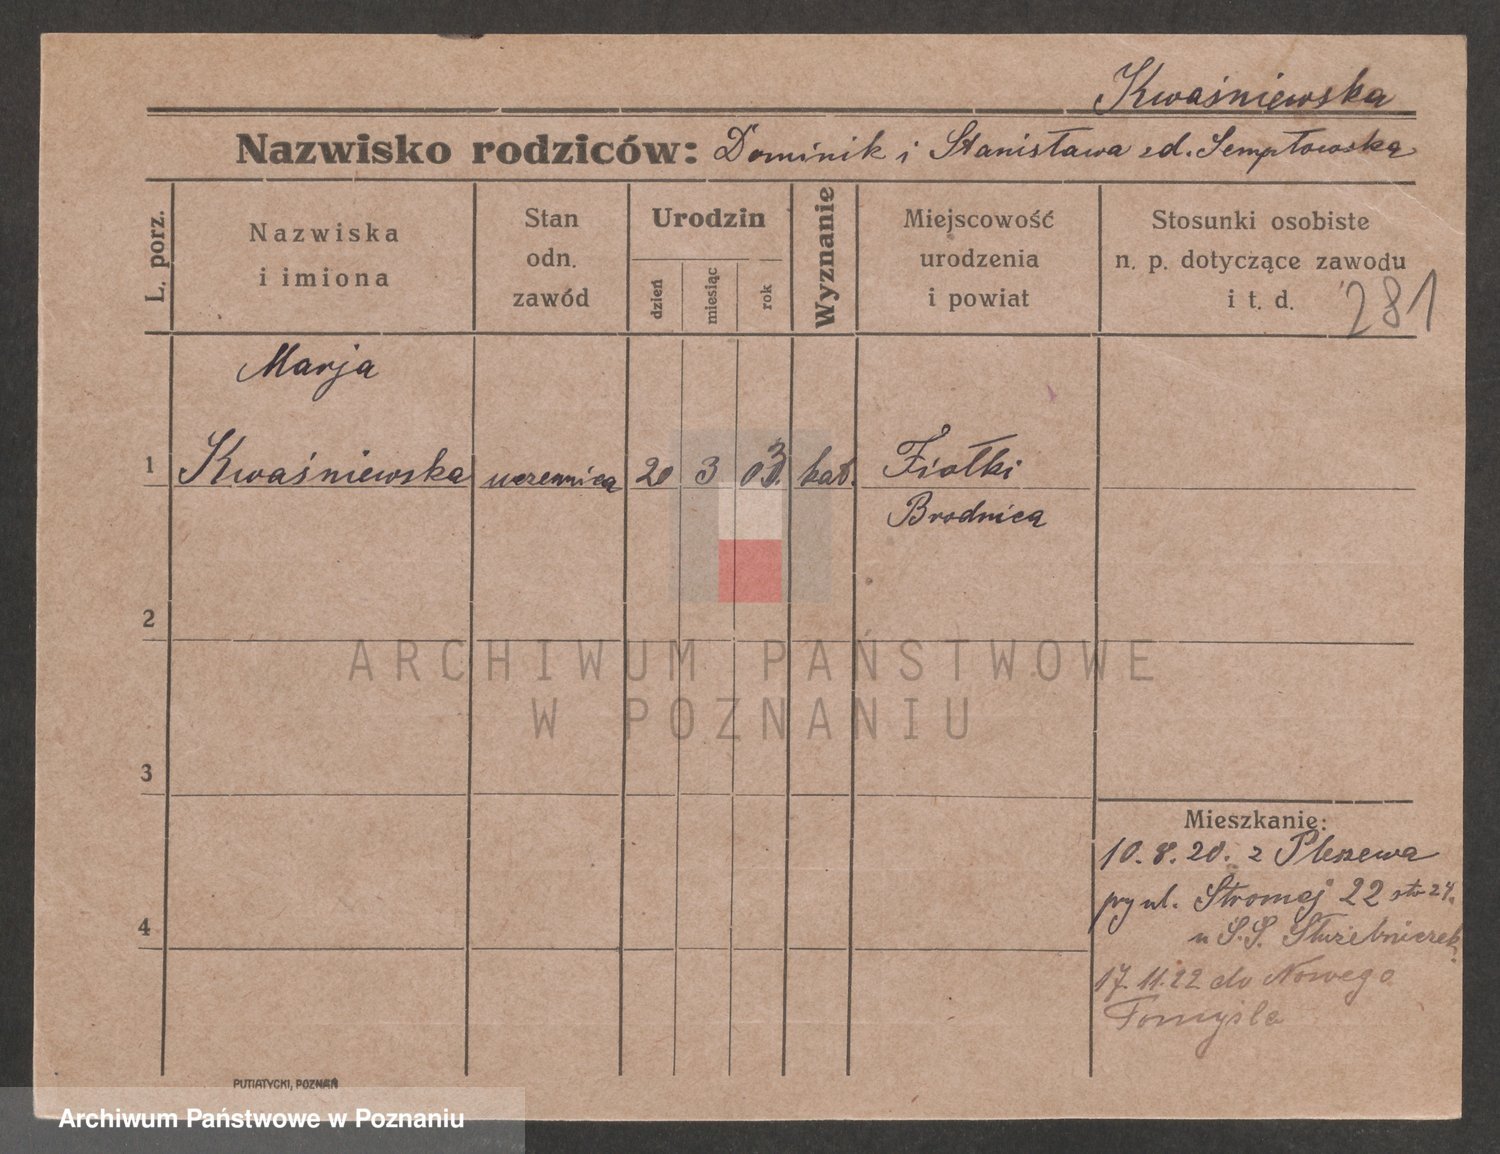 Kwaśniewska
Nazwisko rodziców: Dominik i Stanisława zd. Sempłowska
L. porz.
Nazwiska
i imiona
Stan
odn.
zawód
Urodzin
dzień
miesiąc
rok
Wyznanie
Miejscowość
urodzenia
i powiat
Stosunki osobiste
n. p. dotyczące zawodu
i t. d.
281
Marja
1 Kwaśniewska uczennica 20 3 03. kat. Fiołki
Brodnica
2
ARCHIWUM PAŃSTWOWE
W POZNANIU
3
Mieszkanie:
10.8.20. z Pleszewa
przy ul. Stromej 22 str 24.
u S.S. Służebniczek
4
17.11.22 do Nowego
Tomyśla
PUTIATYCKI, POZNAŃ
Archiwum Państwowe w Poznaniu